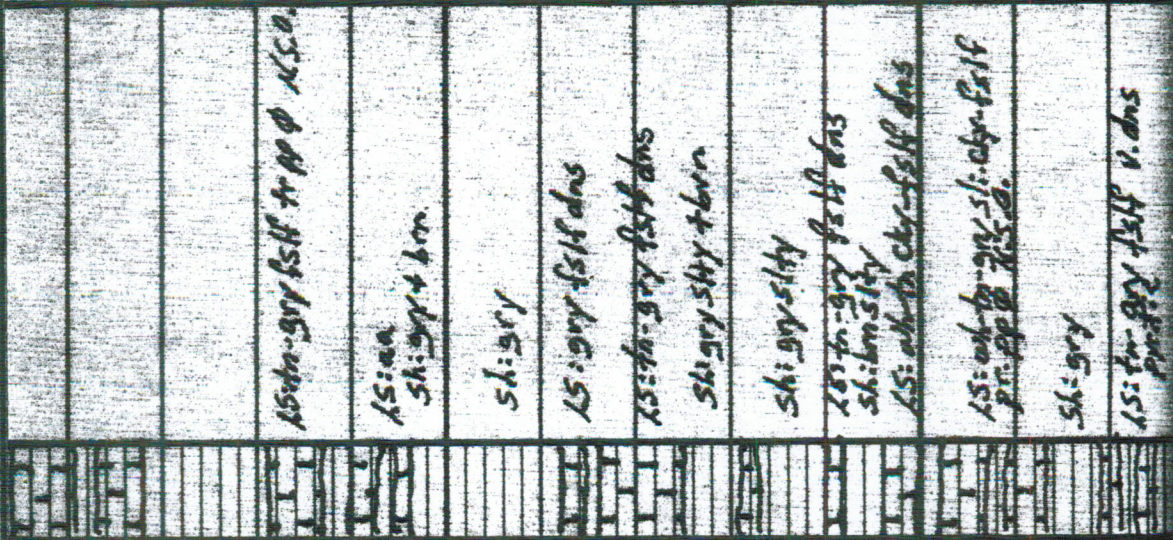 LS: tn-gry fslf tr pp ø N.S.O.
LS: aa
Sh: gry + brn
Sh: gry
LS: gry fslf dns
LS: tn-gry fslf dns
Sh: gry slty + brn
Sh: gry slty
LS: tn-gry fslf dns
Sh: brn slty
LS: wh-tn chy-fslf dns
LS: wh-tn-gry sli. chy-fslf
pr. pp ø N.S.O.
Sh: gry
LS: tn-gry fslf v. dns